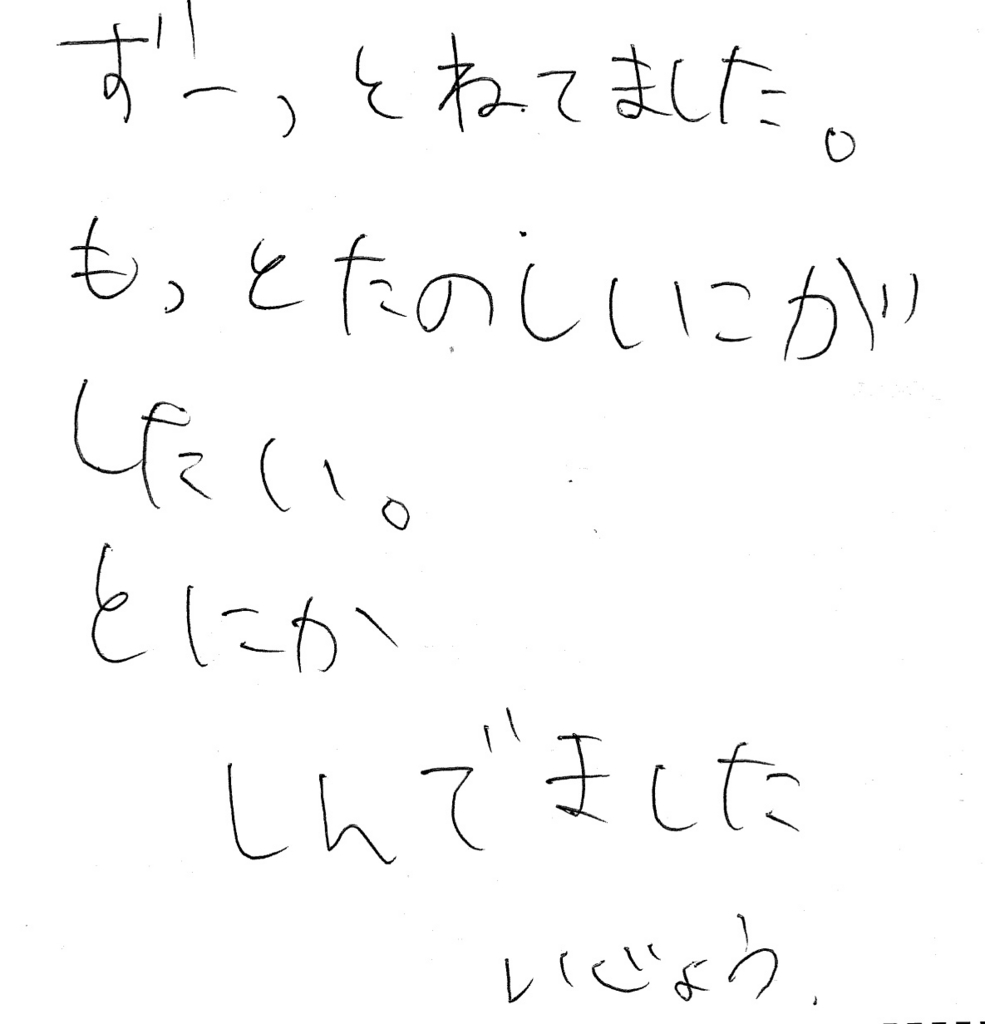 ずーっとねてました。
もっとたのしいにが
したい。
とにか
しんでました
いじょう.